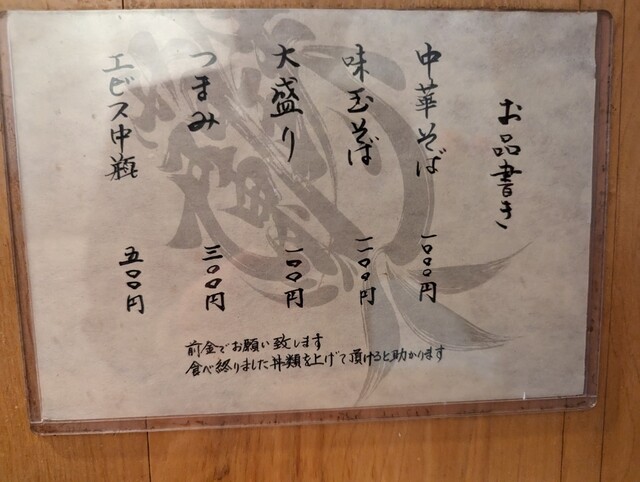 お品書き
中華そば 一000円
味玉そば 一一00円
大盛り 一00円
つまみ 三00円
エビス中瓶 五00円
前金でお願い致します
食べ終りました丼類を上げて頂けると助かります